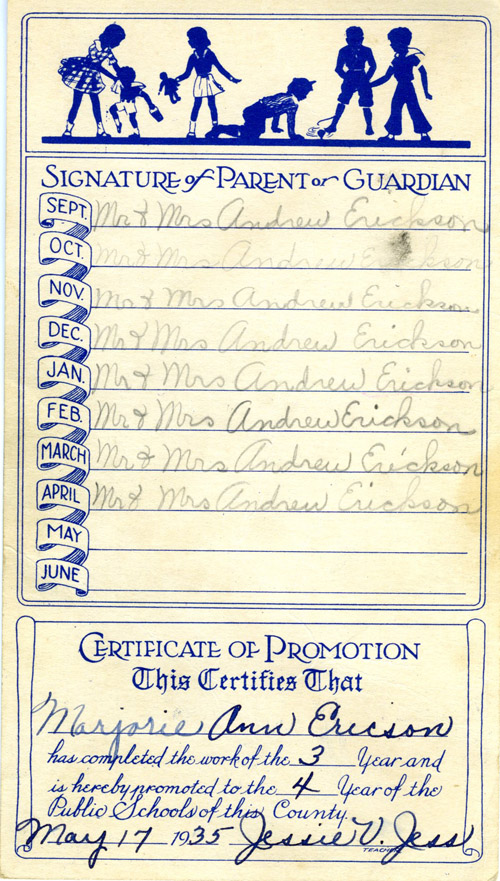 SIGNATURE of PARENT or GUARDIAN
SEPT. Mr & Mrs Andrew Erickson
OCT. Mr & Mrs Andrew Erickson
NOV. Mr & Mrs Andrew Erickson
DEC. Mr & Mrs Andrew Erickson
JAN. Mr & Mrs Andrew Erickson
FEB. Mr & Mrs Andrew Erickson
MARCH Mr & Mrs Andrew Erickson
APRIL Mr & Mrs Andrew Erickson
MAY
JUNE
CERTIFICATE OF PROMOTION
This Certifies That
Marjorie Ann Ericson
has completed the work of the 3 Year and
is hereby promoted to the 4 Year of the
Public Schools of this County.
May 17 1935 Jessie V. Jess
TEACHER